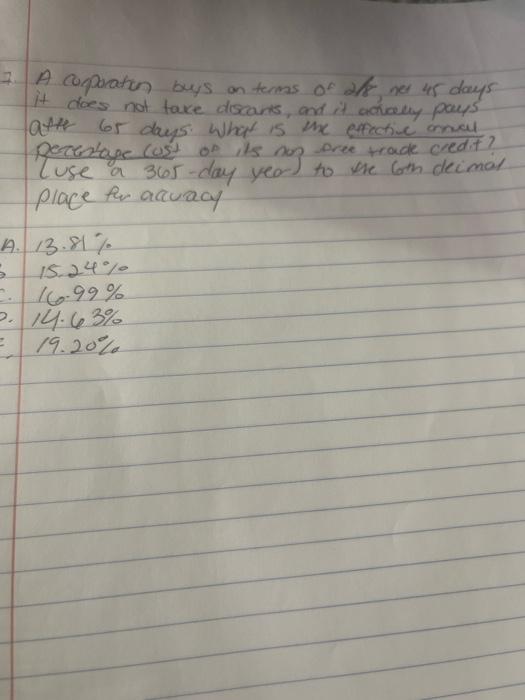 7. A corporation buys on terms of 2/8, net 45 days
it does not take discounts, and it actually pays
after 65 days. What is the effective annual
percentage cost of its non free trade credit?
(use a 365-day year) to the 6th decimal
place for accuracy
A. 13.81%
15.24%
16.99%
D. 14.63%
19.20%